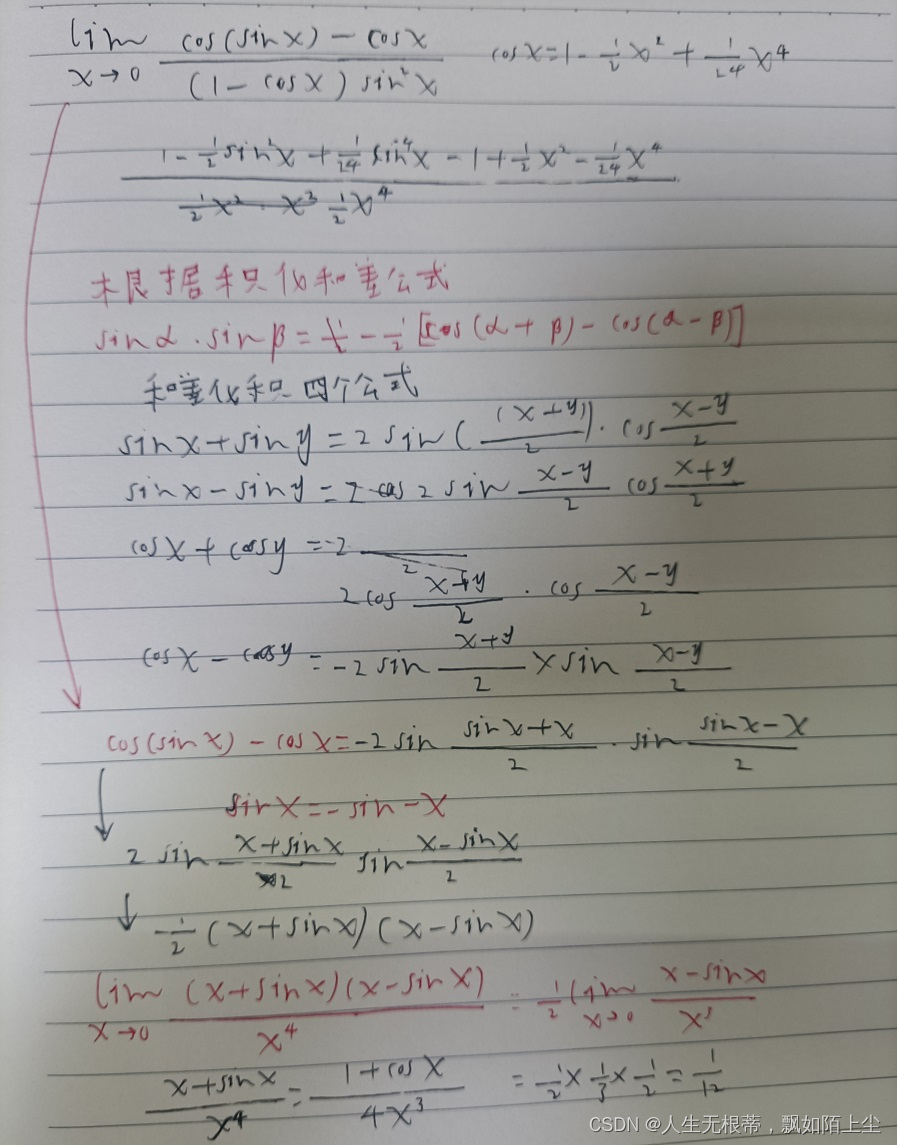 lim x→0 (cos(sinx) - cosx) / ((1 - cosx) sin²x)    cosx = 1 - 1/2 x² + 1/24 x⁴
(1 - 1/2 sin²x + 1/24 sin⁴x - 1 + 1/2 x² - 1/24 x⁴) / (1/2 x⁴)
根据积化和差公式
sinα · sinβ = - 1/2 [cos(α+β) - cos(α-β)]
和差化积 四个公式
sinx + siny = 2 sin((x+y)/2) · cos (x-y)/2
sinx - siny = 2 sin (x-y)/2 cos (x+y)/2
cosx + cosy =
2 cos (x+y)/2 · cos (x-y)/2
cosx - cosy = -2 sin (x+y)/2 × sin (x-y)/2
cos(sinx) - cosx = -2 sin (sinx+x)/2 · sin (sinx-x)/2
sinx = - sin -x
2 sin (x+sinx)/2 sin (x-sinx)/2
1/2 (x+sinx)(x-sinx)
lim x→0 (x+sinx)(x-sinx) / x⁴ = 1/2 lim x→0 (x-sinx) / x³
(x+sinx)/x⁴ = (1+cosx)/4x³    = 1/2 × 1/3 × 1/2 = 1/12
CSDN @人生无根蒂，飘如陌上尘